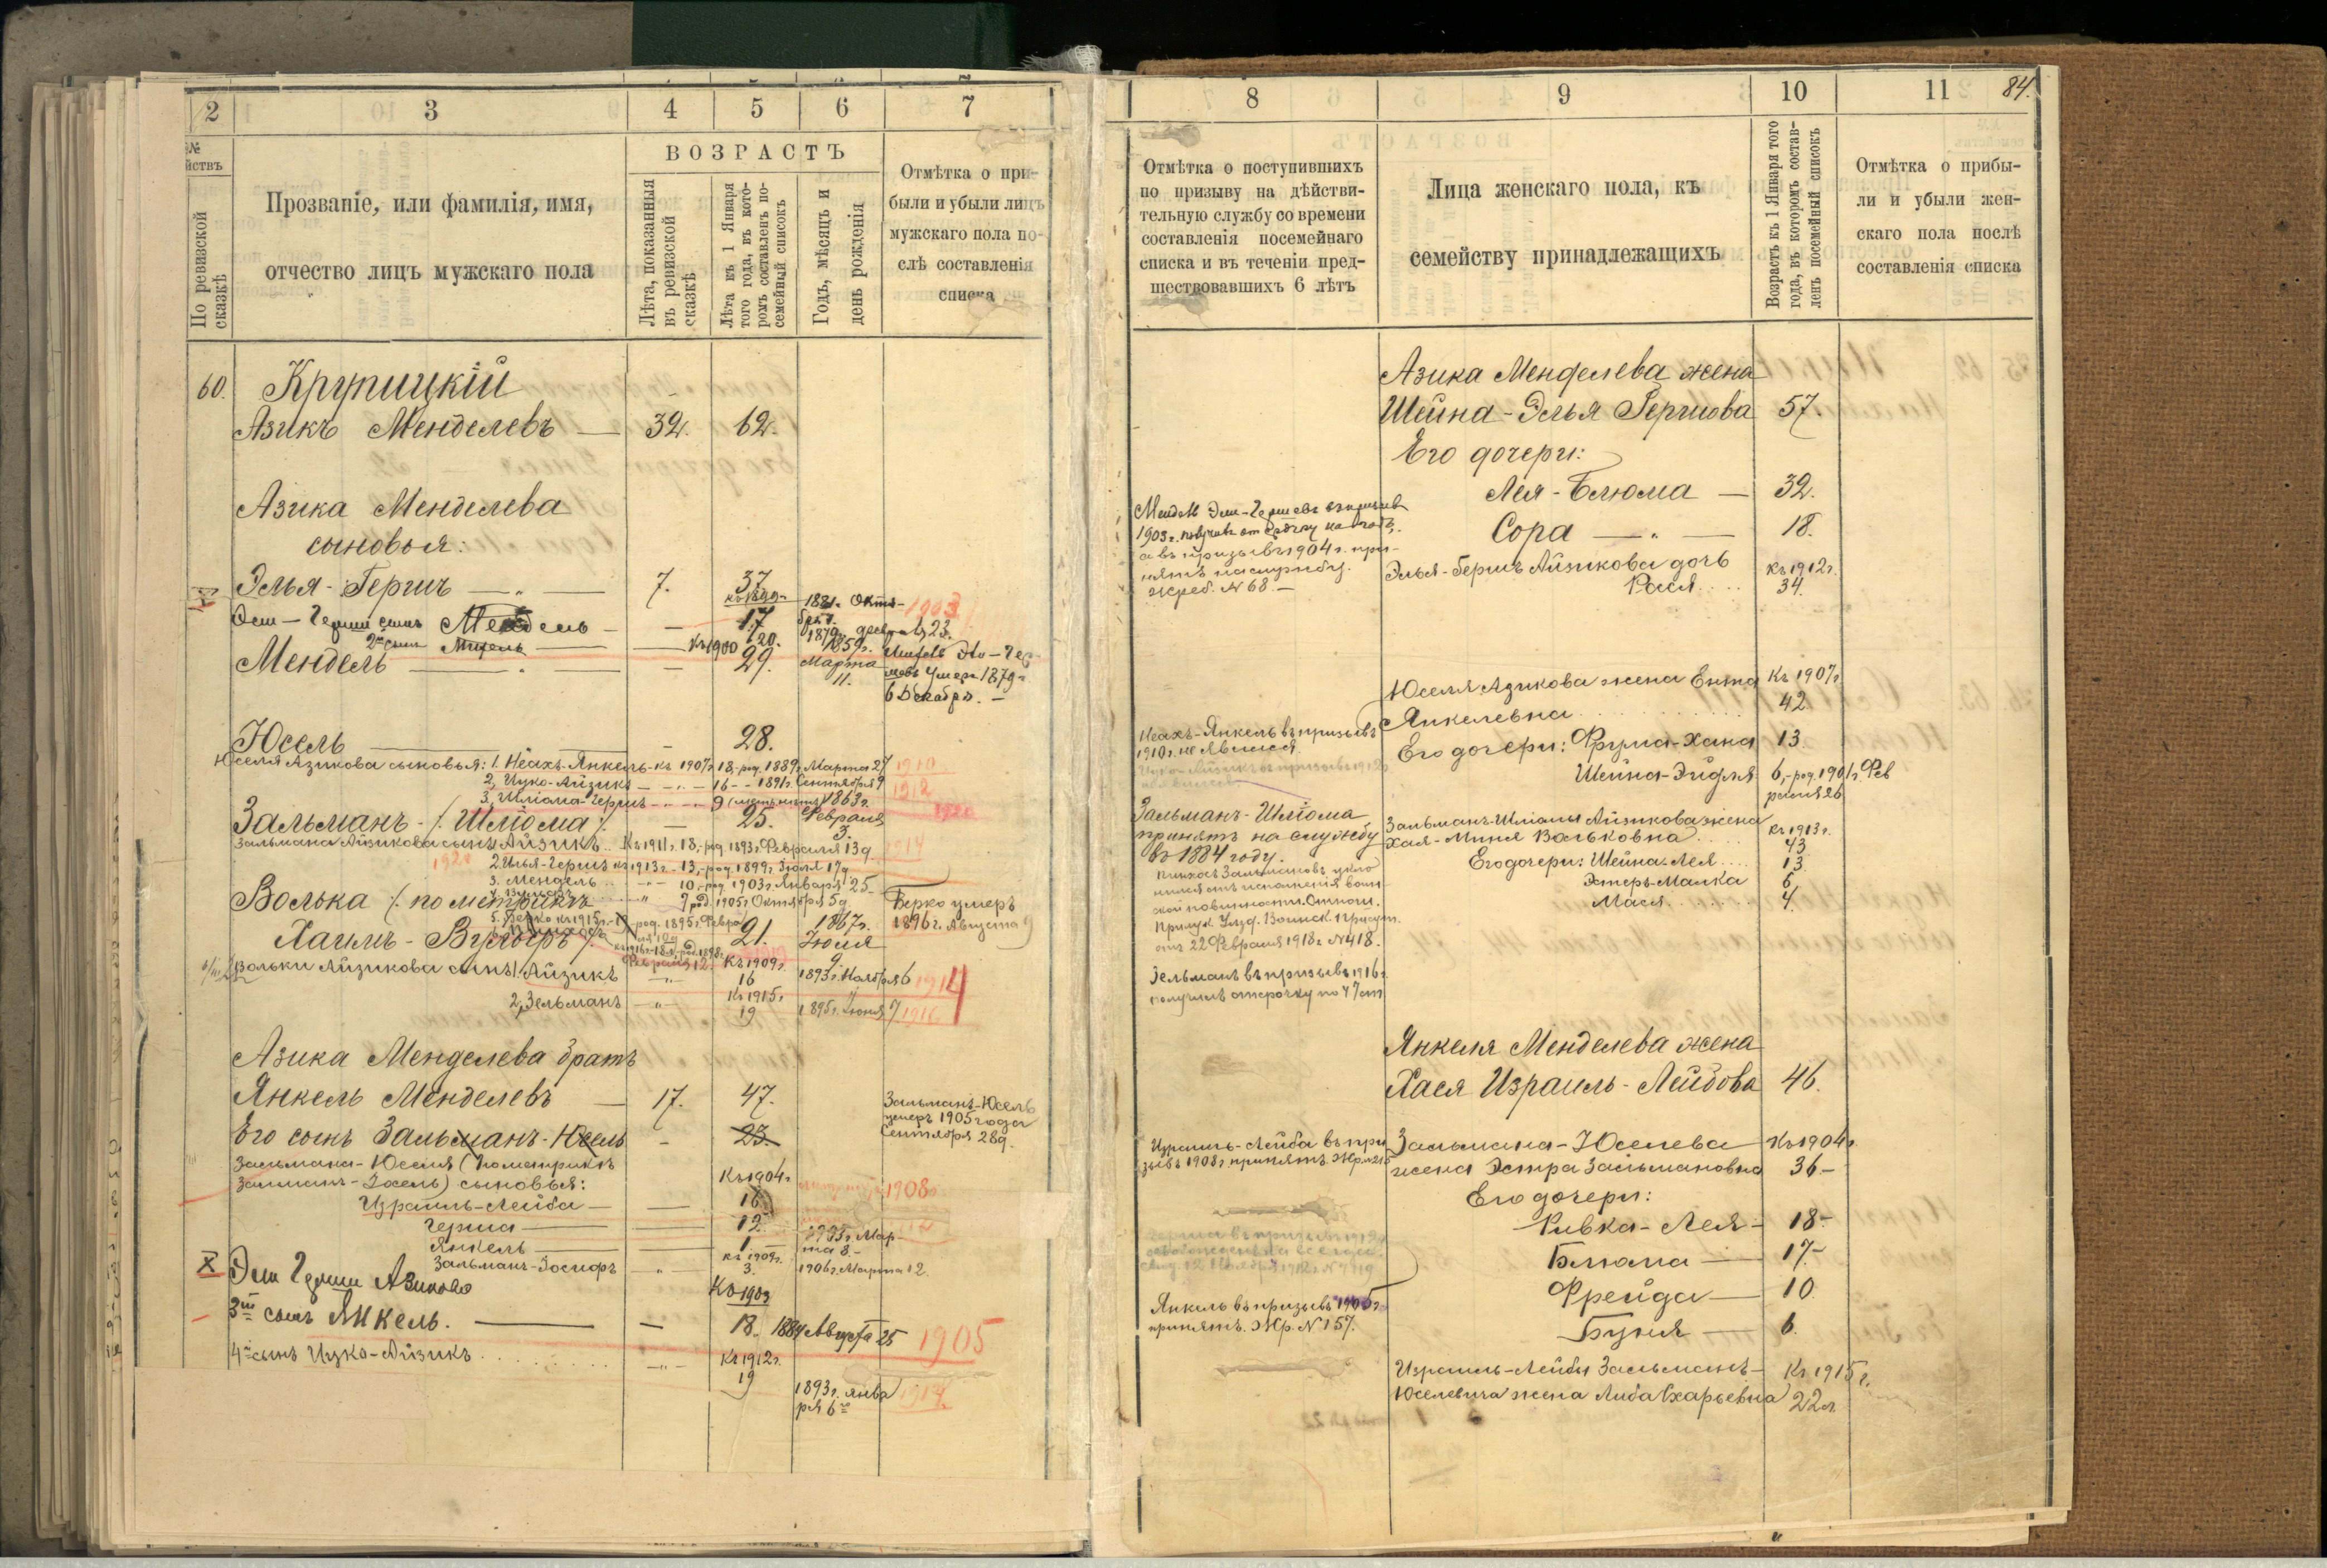 2 3 4 5 6 7
№
йствъ
По ревизской сказкѣ
Прозваніе, или фамилія, имя,
отчество лицъ мужскаго пола
ВОЗРАСТЪ
Лѣта, показанныя
въ ревизской
сказкѣ
Лѣта къ 1 Января
того года, въ кото-
ромъ составленъ по-
семейный списокъ
Годъ, мѣсяцъ и
день рожденія
Отмѣтка о при-
были и убыли лицъ
мужскаго пола по-
слѣ составленія
списка
60. Крупицкій
Азикъ Менделевъ — 32. 62.
Азика Менделева
сыновья:
Элья-Гершъ — 7. 37
къ 1899 г. 1881 г. Окт. 1903
Эли-Герши сынъ Мендель — 17
2й сынъ — къ 1900 20. 1879 февраль 23.
Мендель — 29. 1859 г. Марта 11.
умеръ 1879 г.
6 Декабря. —
Юсель — 28.
Юселя Азикова сыновья: 1. Неахъ-Янкель - къ 1907 г. 18,-род. 1889 г. Марта 27 1910
2, Ицко-Айзикъ — 16 - - 1891 г. Сентября 9 1912
3, Шліома-Гершъ — 9 1920
Зальманъ-/: Шліома :/ — 25. 1863 г. Февраля 3.
Зальмана Айзикова сынъ Айзикъ.. Къ 1911 г. 18,-род. 1893 г. Февраля 13 д. 1914
1920 2. Илья-Гершъ къ 1913 г. - 13,-род. 1899 г. Іюля 17 д.
3. Мендель — 10,-род. 1903 г. Января 25
7 род. 1905 г. Октября 5 д.
Волька /: по метрикѣ
5. Берко къ 1915 г. род. 1895 г. Февра
Хаимъ-Вульфъ :/ 21. 1867 г. Іюля 9.
Берко умеръ
1896 г. Августа 9
Вольки Айзикова сынъ 1, Айзикъ — Къ 1909 г. 16 1893 г. Ноября 6 1914
2, Зельманъ — Къ 1915 г. 19 1895 г. Іюня 7 1916
Азика Менделева братъ
Янкель Менделевъ — 17. 47.
Его сынъ Зальманъ-Юсель — 23.
Зальманъ-Юсель
умеръ 1905 года
Сентября 28 д.
Зальмана-Юселя (по метрикѣ
Залманъ-Іосель) сыновья: Къ 1904 г.
Израиль-Лейба — 16 1908
Герша — 12
Янкель — 1 1903 г. Мар-
та 8. -
Зальманъ-Іосифъ — къ 1909 г. 3. 1906 г. Марта 12.
X Эли Герши Азиково
3й сынъ Янкель. — Къ 1903 18. 1884 Августа 25 1905
4й сынъ Ицко-Айзикъ.... Къ 1912 г. 19 1893 г. янва
ря 6го 1914
8 9 10 11 84.
Отмѣтка о поступившихъ
по призыву на дѣйстви-
тельную службу со времени
составленія посемейнаго
списка и въ теченіи пред-
шествовавшихъ 6 лѣтъ
Лица женскаго пола, къ
семейству принадлежащихъ
Возрастъ къ 1 Января того
года, въ которомъ состав-
ленъ посемейный списокъ
Отмѣтка о прибы-
ли и убыли жен-
скаго пола послѣ
составленія списка
Азика Менделева жена
Шейна-Элья Гершова 57.
Его дочери:
Лея-Блюма — 32.
Сора — 18.
Мендель Эли-Гершевъ въ призывъ
1903 г. получилъ отсрочку на годъ.
а въ призывъ 1904 г. при-
нятъ на службу.
жреб. № 68. —
Элья-Гершъ Айзикова дочь Къ 1912 г.
Рася.... 34.
Юселя Азикова жена Ента Къ 1907 г.
Янкелевна..... 42.
Его дочери: Фрума-Хана 13.
Шейна-Эйдля 6,-род. 1901 г. Фев
раля 26
Неахъ-Янкель въ призывъ
1910 г. не явился
Ицко-Айзикъ въ призывъ 1912
Зальманъ-Шліома
принятъ на службу
въ 1884 году.
Зальманъ-Шліомы Айзикова жена
Хая-Миня Вольковна.... Къ 1913 г. 43
Его дочери: Шейна-Лея.... 13
Эстеръ-Малка 6
Мася...... 4.
Пинхасъ Зальмановъ укло-
нился отъ исполненія воин-
ской повинности. Отнош.
Прилук. Уѣзд. Воинск. Присут.
отъ 22 Февраля 1918 г. № 418.
Зельманъ въ призывъ 1916 г.
получилъ отсрочку по 47 ст.
Янкеля Менделева жена
Хася Израиль-Лейбова 46.
Израиль-Лейба въ при
зывъ 1908 г. принятъ. Жр. № 215
Зальмана-Юселева Къ 1904 г.
жена Эстра Зальмановна 36 —
Его дочери:
Ривка-Лея — 18 —
Блюма — 17 —
Фрейда — 10
Буня — 6.
Герша въ призывъ 1912 г.
освобожденъ навсегда.
Янкель въ призывъ 1905 г.
принятъ. Жр. № 157.
Израиль-Лейбы Зальманъ- Къ 1915 г.
Юселевича жена Либа Схарьевна 22 л.